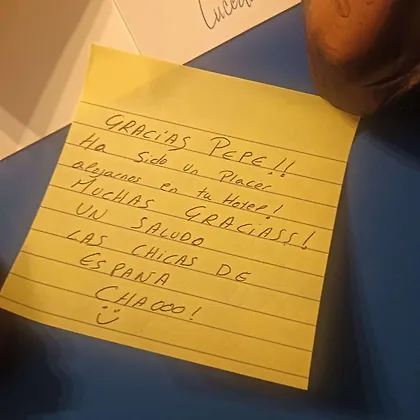 GRACIAS PEPE!!
Ha Sido un Placer
alojarnos en tu Hotel!
MUCHAS GRACIASS!
UN SALUDO
LAS CHICAS DE
ESPAÑA
CHAOOO!